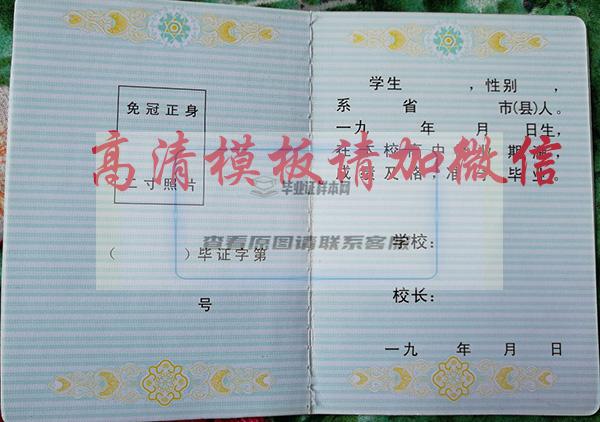 免冠正身
二寸照片
（ ）毕证字第
号
学生 ，性别 ，
系 省 市(县)人。
一九 年 月 日生，
在本校高中 业期满，
成绩及格，准予毕业。
学校：
校长：
一九 年 月 日
高清模板请加微信
毕业证样本网
查看原图请联系客服